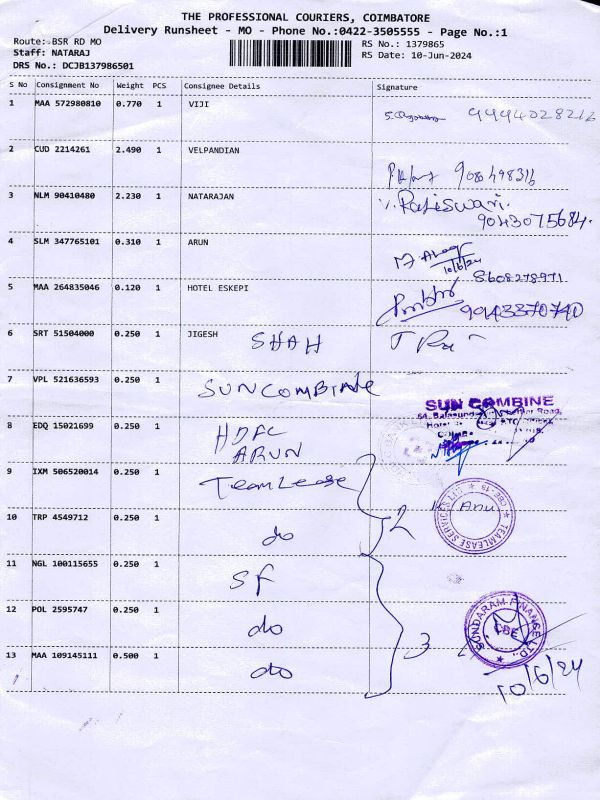 THE PROFESSIONAL COURIERS, COIMBATORE
Delivery Runsheet - MO - Phone No.:0422-3505555 - Page No.:1
Route: BSR RD MO
Staff: NATARAJ
DRS No.: DCJB137986501
RS No.: 1379865
RS Date: 10-Jun-2024
S No Consignment No Weight PCS Consignee Details Signature
1 MAA 572980810 0.770 1 VIJI 9994028216
2 CUD 2214261 2.490 1 VELPANDIAN
3 NLM 90410480 2.230 1 NATARAJAN Rajeswari. 9043075684.
4 SLM 347765101 0.310 1 ARUN 10/6/24 8608278971
5 MAA 264835046 0.120 1 HOTEL ESKEPI
6 SRT 51504000 0.250 1 JIGESH SHAH
7 VPL 521636593 0.250 1 SUNCOMBINE SUN COMBINE
8 EDQ 15021699 0.250 1 HDFC ARUN
9 IXM 506520014 0.250 1 TeamLease
10 TRP 4549712 0.250 1 do 2 TEAMLEASE SERVICES LTD
11 NGL 100115655 0.250 1 SF
12 POL 2595747 0.250 1 do 3 SUNDARAM FINANCE LTD. CBE
13 MAA 109145111 0.500 1 do 10/6/24